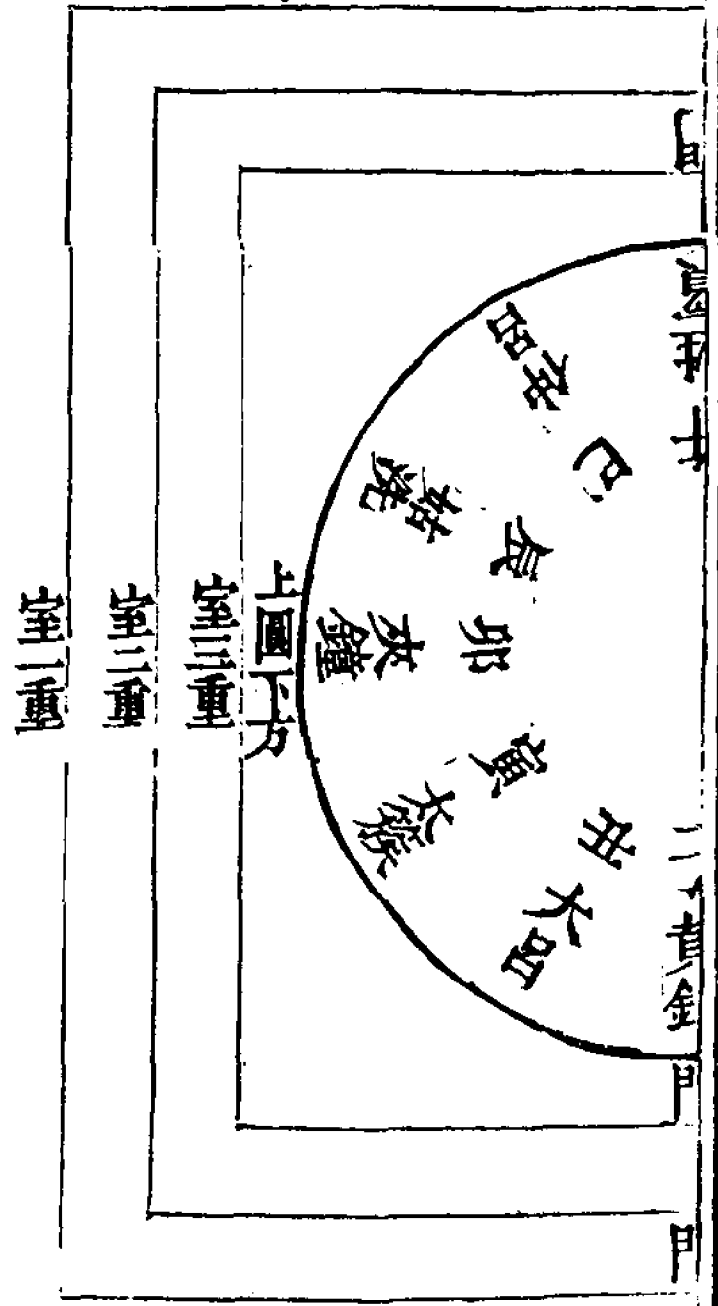 門
巳
呂
辰
姑洗
卯
夾鐘
寅
大簇
丑
大呂
門
門
上圓下方
室三重
室二重
室一重